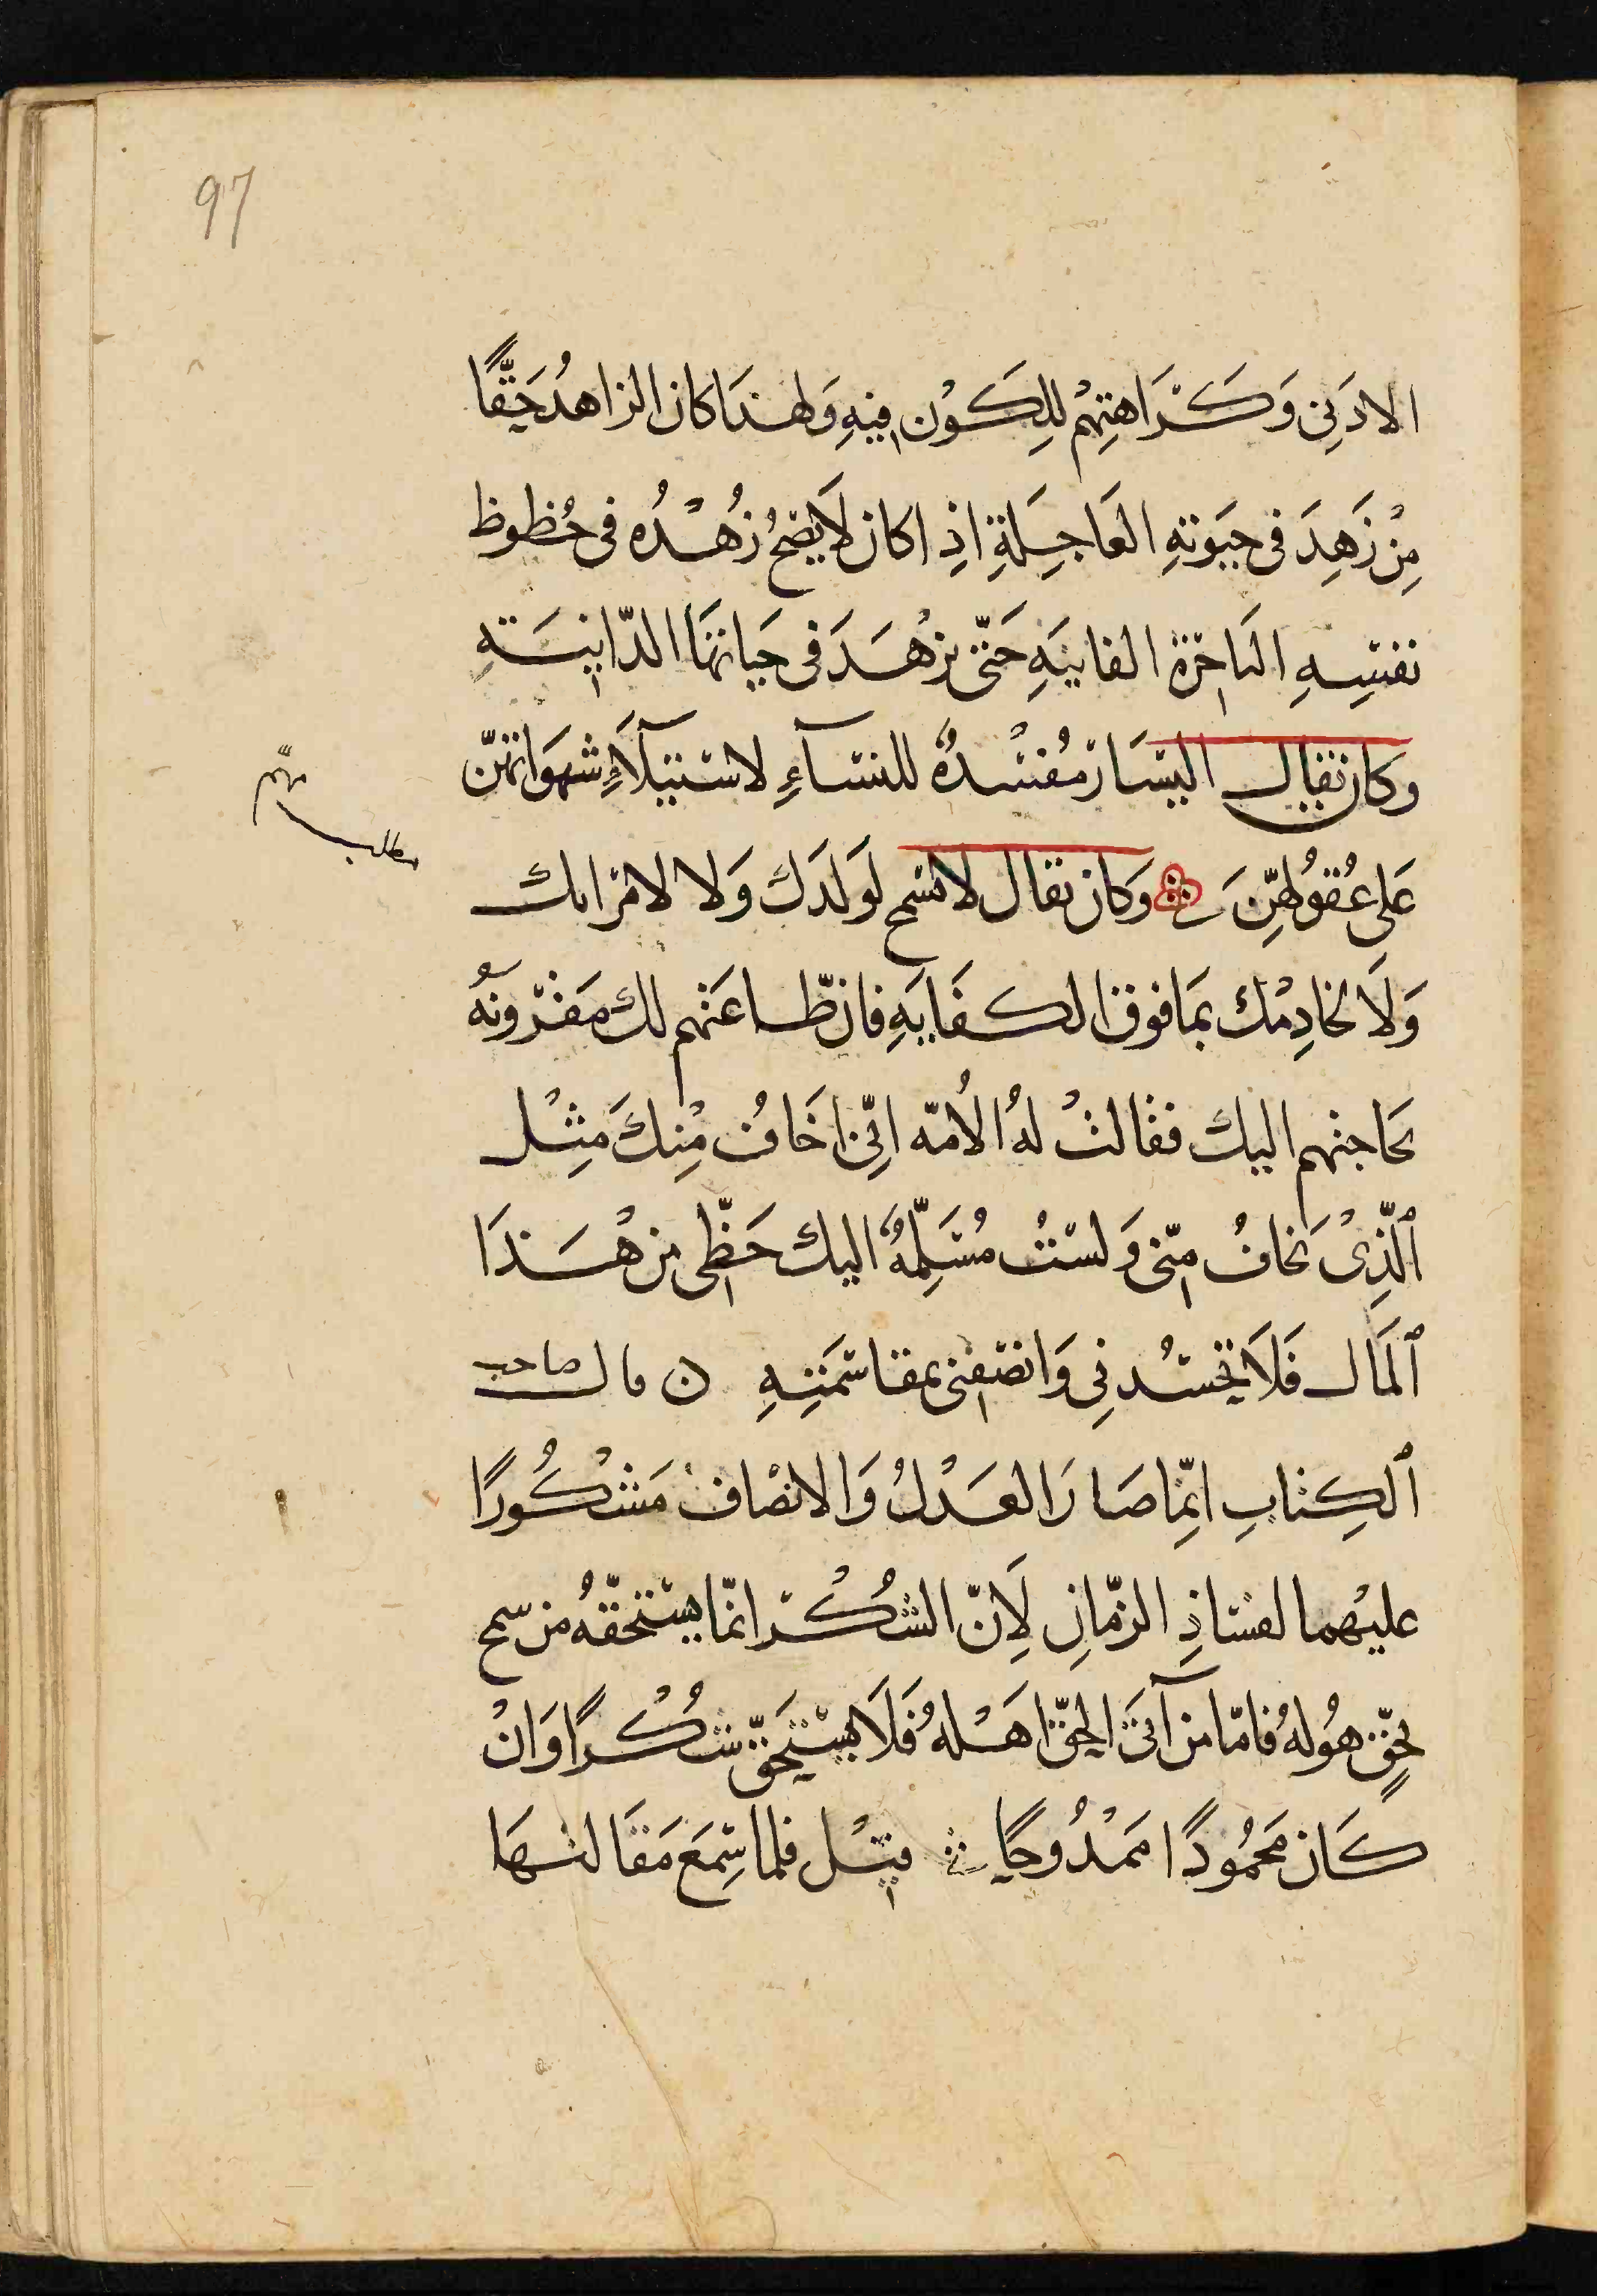 97
الادَنِى وَكَرَاهتِهِمْ لِلِكَوْن فِيْهِ وَلهذَا كان الزاهدُ حَقًّا
مِنْ زَهِدَ فى حيَوتهِ العَاجِلَةِ اذِ اكان لَا يَصِحُّ زُهْدُه فى حُظُوظ
نفسِهِ الفانيَهِ حَتّى يزْهَدَ فى حيَاتهَا الدّانِيَتهِ
وكان يقال اليَسَار مُفسْدهٌ للنسآءِ لاستيلآءِ شهوَاتهنّ
عَلى عُقوُلهِنّ وَكان يقال لا تسمح لوَلدَك وَلا لامراتك
وَلَا لخادِمْك بمَا فوق الكفَايَهِ فان طّاعَتهم لك مَقْرونهٌ
بحَاجتهم اليك فقالتْ لهُ الاُمّه انِّى اخَافُ مِنكَ مِثْل
ٱلّذِىْ تخافُ مِنّى وَلسْتُ مُسَلِّمهً اليك حَظِّى من هَذَا
ٱلمَال فَلَا تحْسُدنِى وَانصفنى بمقاسَمَتِهِ ن قال صاحب
ٱلكِتابِ انمِّا صَارَ العَدْلُ وَالانصْاف مَشْكُورًا
عليْهما لفسَادِ الزمّانِ لِاَنّ الشُكْر انمّا يسْتحقّهُ من سمح
بحَقٍّ هوُ لهُ فامّا من آتىَ الحقّ اهَلهُ فَلَا يسْتَحَقّ شُكْرًا وَانْ
كَان مَحْمُودًا ممْدُوحًا قيْل فلما سَمِعَ مَقالتهَا
مهم
مطلب